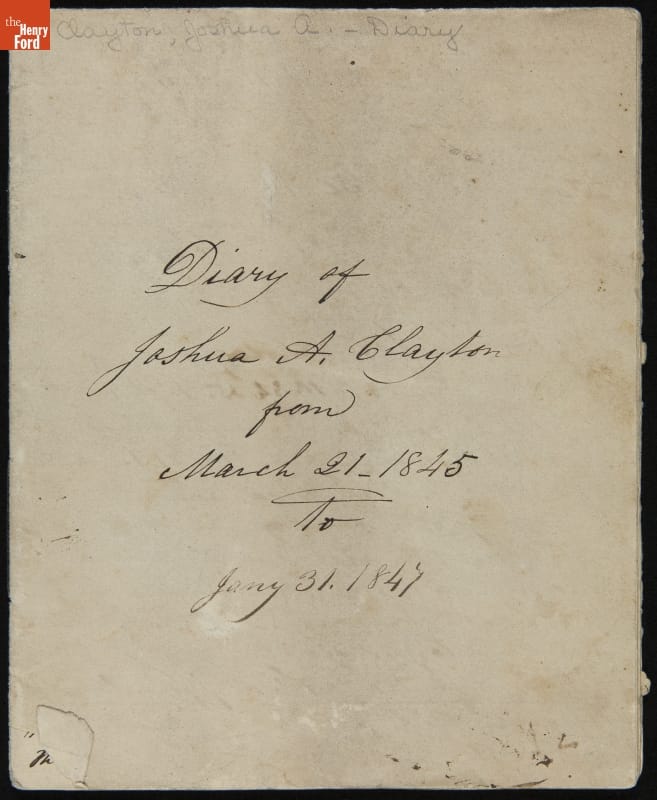 the
Henry
Ford
Clayton, Joshua A. - Diary
Diary of
Joshua A. Clayton
from
March 21 - 1845
To
Jany 31. 1847